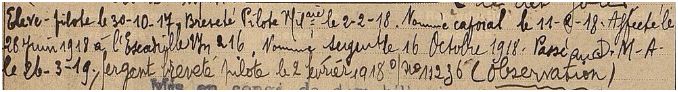 Eleve-pilote le 30-10-17, Breveté Pilote Mil.aire le 2-2-18. Nommé caporal le 11-8-18. Affecté le
28 Juin 1918 à l'Escadrille Vn 216. Nommé sergent le 16 Octobre 1918. Passé au D.M.A.
le 26-3-19. Sergent breveté pilote le 2 février 1918 No 11236 (Observation)
Mis en congé de